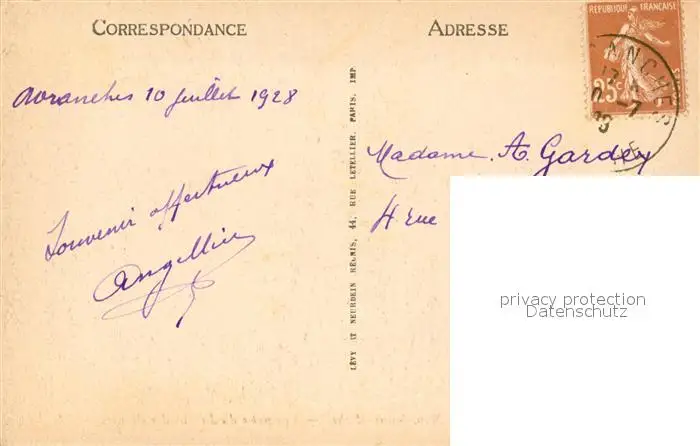 CORRESPONDANCE
ADRESSE
RÉPUBLIQUE FRANÇAISE
25c
Avranches 10 Juillet 1928
Souvenir affectueux
LÉVY ET NEURDEIN RÉUNIS, 44, RUE LETELLIER, PARIS, IMP
Madame. A. Gardey
4 rue
privacy protection
Datenschutz